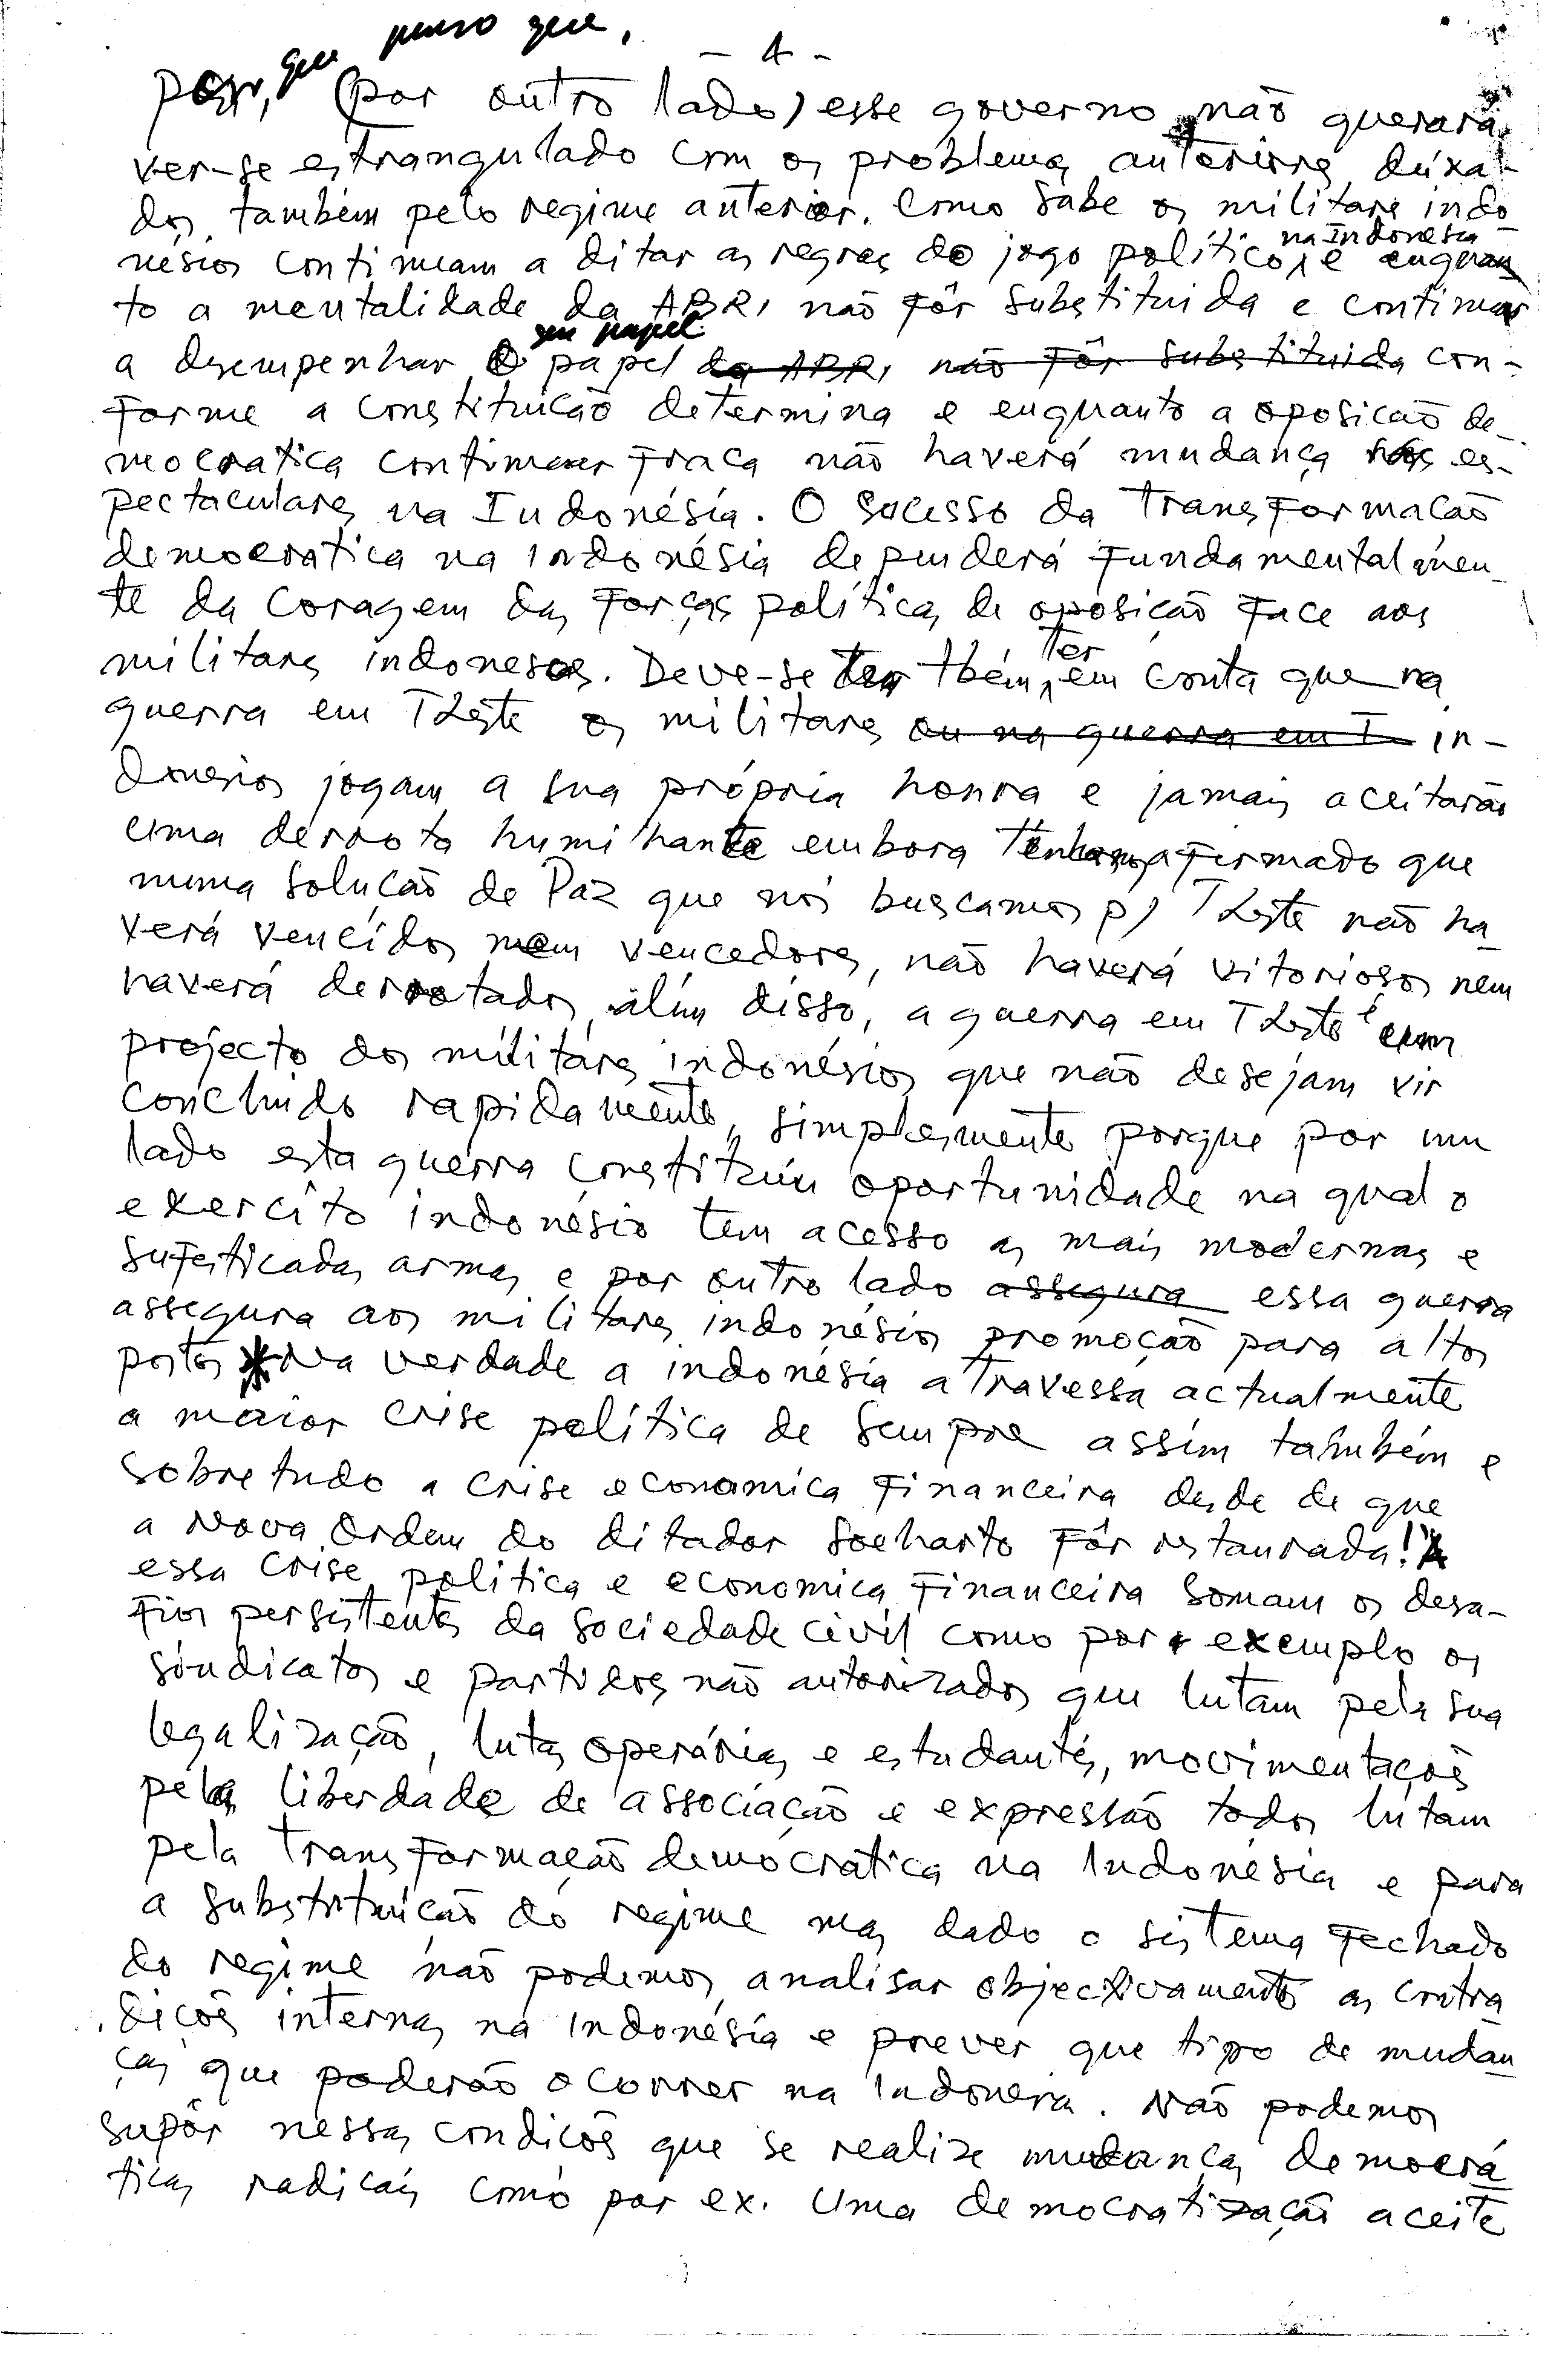 penso que,
- 4 -
posr, que (por outro lado) esse governo não querará
ver-se estrangulado com os problemas anteriores deixa-
dos também pelo regime anterior. Como sabe os militares indo
nésios continuam a ditar as regras do jogo político, e enquan
na Indonésia
to a mentalidade da ABRI não fôr substituida e continuar
seu papel
a desempenhar o papel da ABRI não fôr substituida con-
forme a constituicão determina e enquanto a oposicão de-
mocratica continuar fraca não haverá mudança es-
pectaculares na Indonésia. O sucesso da transformacão
democratica na Indonésia dependerá fundamentalmen-
te da coragem das forças políticas de oposição face aos
ter
militares indoneseos. Deve-se ter tbém, em conta que na
guerra em TLeste os militares ou na guerra em T in-
donesios jogam a sua própria honra e jamais aceitarão
uma derrota humilhante embora tenham afirmado que
numa solução de Paz que nós buscamos p/ TLeste não ha-
verá vencidos nem vencedores, não haverá vitoriosos nem
haverá derrotados, além disso, a guerra em TLeste é um
projecto dos militares indonésios que não desejam vir
concluido rapidamente, simplesmente porque por um
lado esta guerra constituiu oportunidade na qual o
exercito indonésio tem acesso as mais modernas e
sufesticadas armas e por outro lado assegura essa guerra
assegura aos militares indonésios promoção para altos
postos Na verdade a indonésia atravessa actualmente
a maior crise política de sempre assim também e
sobretudo a crise economica financeira desde de que
a Nova Ordem do ditador Soeharto fôr restaurada! A
essa crise politica e economica financeira somam os desa-
fios persistentes da sociedade civil como por exemplo os
sindicatos e partidos não autorizados que lutam pela sua
legalização, lutas operárias e estudantes, movimentações
pela liberdade de associação e expressão todos lutam
pela transformação democratica na Indonésia e para
a substituicão do regime mas dado o sistema fechado
do regime não podemos analisar objectivamente as contra
dicões internas na Indonésia e prever que tipo de mudan
ças que poderão ocorrer na Indonesia. Não podemos
supôr nessas condicões que se realize mudanças democrá
ticas radicais como por ex. uma democratização aceite